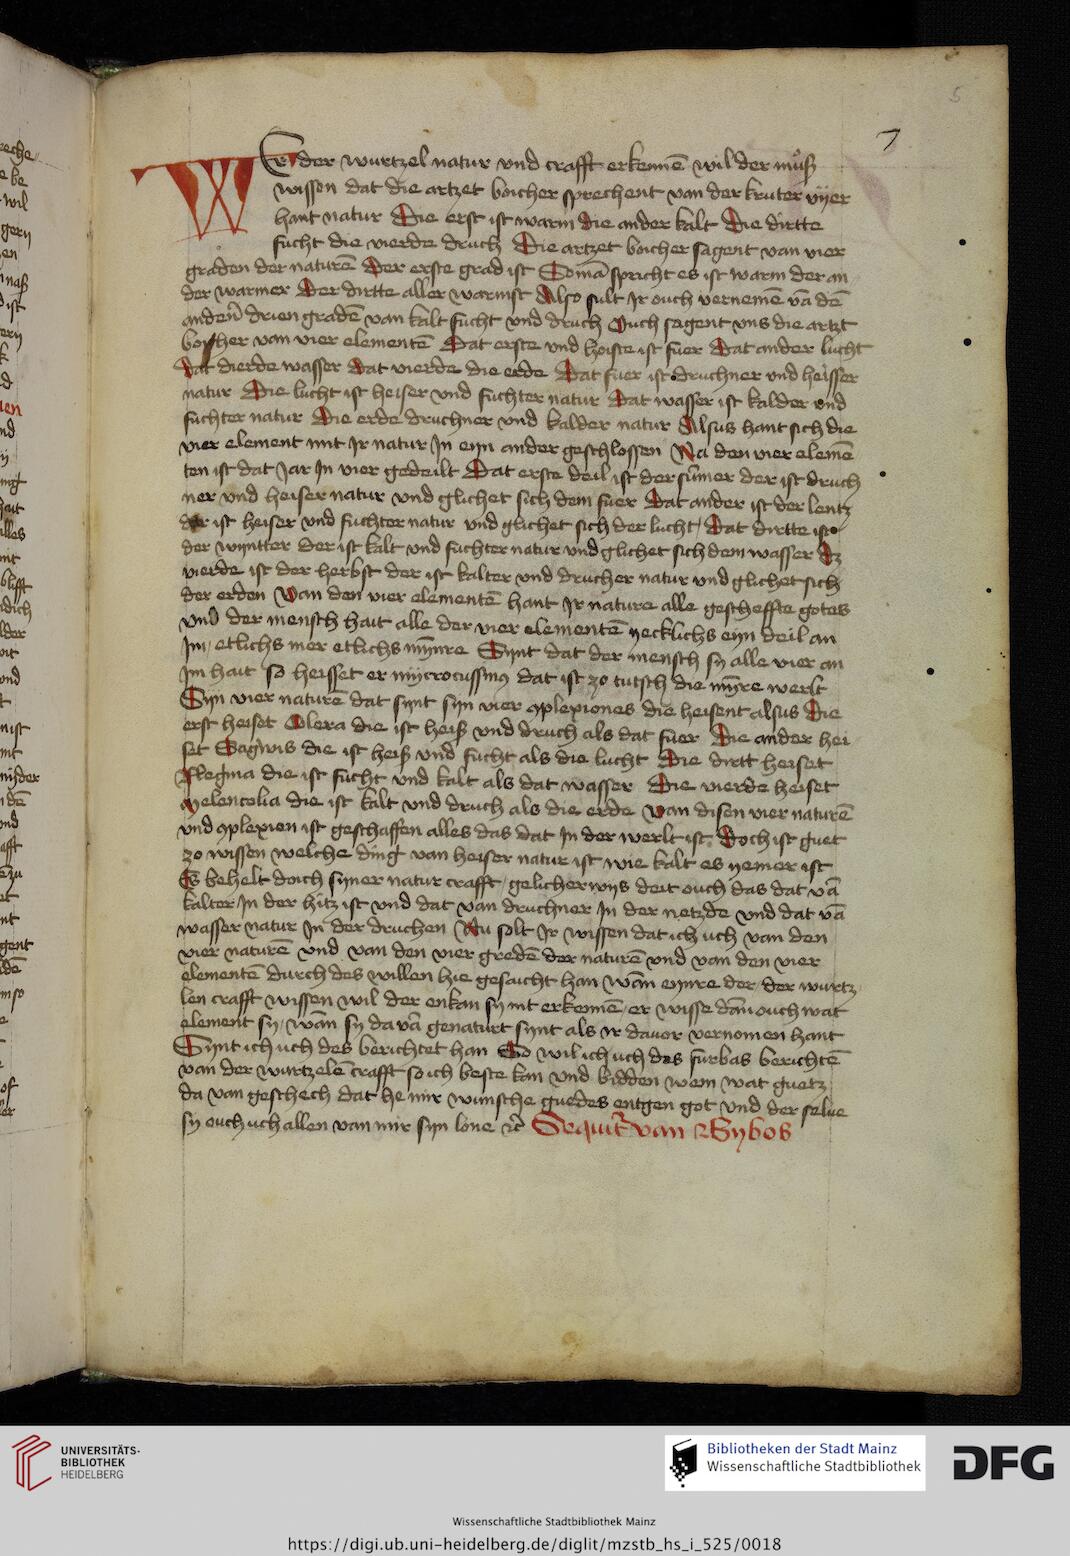 5
7
Wer der wurtzel natur vnd crafft erkennē wil der muͦß
wissen dat die artzet boicher sprechent van der kruter vijer
hant natur Die erst ist warm die ander kalt Die dirtte
fucht die vierde druch Die artzet boicher sagent van vier
graden der naturē Der erste grad ist Somā spricht es ist warm der an
der warmer Der dirtte aller warmst Also sult Ir ouch vernemē vā dē
andeñ drien gradē van kalt fucht vnd druch Ouch sagent vns die artzt
boicher van vier elementē Dat erste vnd hoiste ist fuer Dat ander lucht
Dat dierde wasser Dat vierde die erde Dat fuer ist druchner vnd heisser
natur Die lucht ist heiser vnd fuchter natur Dat wasser ist kalder vnd
fuchter natur Die erde druchner vnd kalder natur Alsus hant sich die
vier element mit Ir natur In eyn ander geschlossen Na den vier elemē
ten ist dat Jar In vier gedeilt Dat erste deil ist der sūmer der ist druch
ner vnd heiser natur vnd glichet sich dem fuer Dat ander ist der lentz
der ist heiser vnd fuchter natur vnd glichet sich der lucht / Dat dirtte ist
der wyntter der ist kalt vnd fuchter natur vnd glichet sich dem wasser Dz
vierde ist der herbst der ist kalter vnd drucher natur vnd glichet sich
der erden Van den vier elementē hant Ir nature alle gescheffte gotes
vnd der mensch hait alle der vier elementē yecklichs eyn deil an
Im / etlichs mer etlichs mȳnre Synt dat der mensch sy alle vier an
Im hait so heisset er dat ist zo tutsch die mȳre werlt
Syn vier naturē dat synt syn vier 9plexiones die heisent alsus Die
erst heiset Colera die ist heiß vnd druch als dat fuer Die ander hei
set Sagwis die ist heiß vnd fucht als die lucht Die dirtt heiset
Flegma die ist fucht vnd kalt als dat wasser Die vierde heiset
Melencolia die ist kalt vnd druch als die erde Van disen vier naturē
vnd 9plexien ist geschaffen alles das dat In der werlt ist Doch ist guet
zo wissen welche ding van heiser natur ist wie kalt es yemer ist
Es behelt doich syner natur crafft / gelicherwys deit ouch das dat vā
kalter In der hitz ist vnd dat van druchner In der netzde vnd dat vā
wasser natur In der druchen Nu solt Ir wissen dat ich uch van den
vier naturē vnd van den vier gredē der naturē vnd van den vier
elementē durch des willen hie gesaicht han wān eynre der / der wurtz
len crafft wissen wil der enkan sy nit erkennē / er wisse dān ouch wat
element sy / wān sy da vā genaturt synt als ir davor vernomen hant
Synt ich uch des berichtet han So wil ich uch des furbas berichtē
van der wurtzelē crafft so ich beste kan vnd bidden wem wat guetz
da van geschech dat he mir wunsche guedes entgen got vnd der selue
sy ouch uch allen van mir syn lone ⁊c̄ Sequit᷑ van Bybos
UNIVERSITÄTS-
BIBLIOTHEK
HEIDELBERG
Bibliotheken der Stadt Mainz
Wissenschaftliche Stadtbibliothek
DFG
Wissenschaftliche Stadtbibliothek Mainz
https://digi.ub.uni-heidelberg.de/diglit/mzstb_hs_i_525/0018